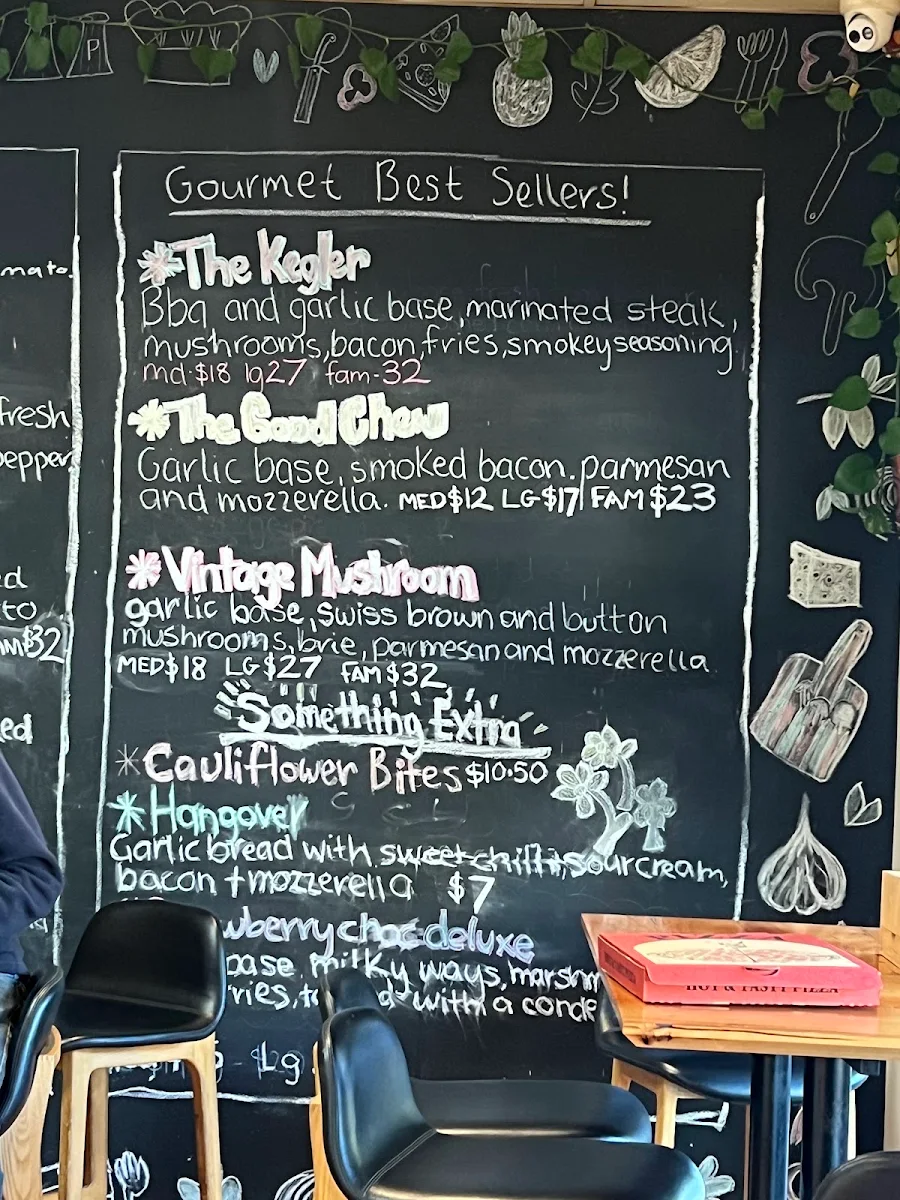 P
Gourmet Best Sellers!
mato.
*The Kegler
Bbq and garlic base, marinated steak,
mushrooms, bacon, fries, smokey seasoning
md-$18 lg27 fam-32
fresh
*The Good Chew
pepper
Garlic base, smoked bacon. parmesan
and mozzerella. MED$12 LG$17 FAM$23
*Vintage Mushroom
garlic base, swiss brown and button
mushrooms, brie, parmesan and mozzerella.
MED$18 LG$27 FAM$32
$32
Something Extra
*Cauliflower Bites $10.50
*Hangover
Garlic bread with sweet chilli, sour cream,
bacon + mozzerella $7
wberry choc deluxe
base, milky ways, marshm
with a conde
HOT & TASTY PIZZA
Lg